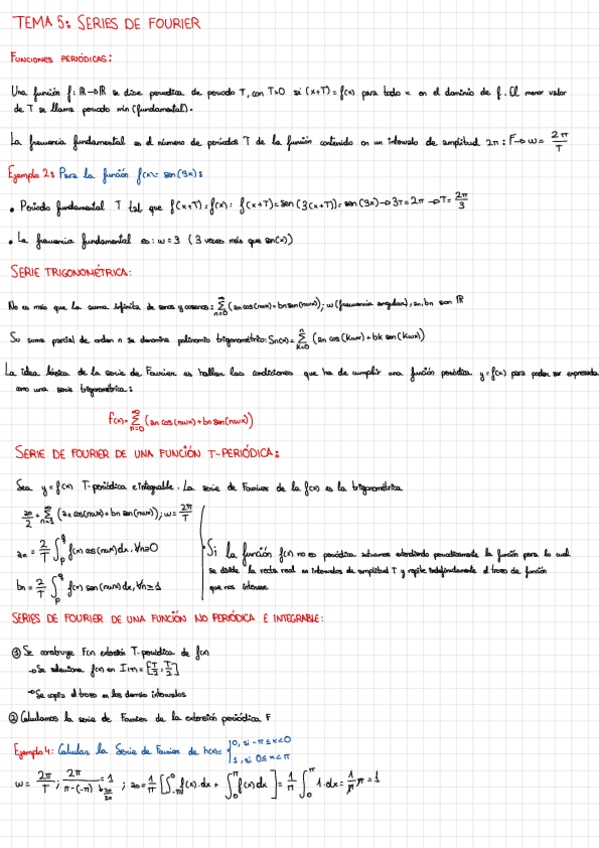 TEMA 5: SERIES DE FOURIER
FUNCIONES PERIÓDICAS:
Una función f: R→R se dice periodica de periodo T, con T>0 si (x+T)=f(x) para todo x en el dominio de f. El menor valor
de T se llama periodo min (fundamental).
La frecuencia fundamental es el número de periodos T de la función contenido en un intervalo de amplitud 2π: F→ω= 2π/T
Ejemplo 2: Para la función f(x)= sen(3x):
• Periodo fundamental T tal que f(x+T)=f(x): f(x+T)=sen(3(x+T))=sen(3x)→3T=2π→T=2π/3
• La frecuencia fundamental es: ω=3 (3 veces más que sen(x))
SERIE TRIGONOMÉTRICA:
No es más que la suma infinita de senos y cosenos: ∑_{n=0}^{∞} (an cos(nωx)+bn sen(nωx)); ω (frecuencia angular), an, bn son R
Su suma parcial de orden n se denomina polinomio trigonométrico: Sn(x)=∑_{k=0}^{n} (an cos(kωx)+bk sen(kωx))
La idea básica de la serie de Fourier es hallar las condiciones que ha de cumplir una función periódica y=f(x) para poder ser expresada
como una serie trigonométrica:
f(x)=∑_{n=0}^{∞} (an cos(nωx)+bn sen(nωx))
SERIE DE FOURIER DE UNA FUNCIÓN T-PERIÓDICA:
Sea y=f(x) T-periódica e integrable. La serie de Fourier de la f(x) es la trigonométrica
a0/2 + ∑_{n=1}^{∞} (an cos(nωx)+bn sen(nωx)); ω=2π/T
an = 2/T ∫_p^q f(x) cos(nωx)dx, ∀n≥0
bn = 2/T ∫_p^q f(x) sen(nωx)dx, ∀n≥1
Si la función f(x) no es periódica extendiendo periodicamente la función para lo cual
se divide la recta real en intervalos de amplitud T y repite indefinidamente el trozo de función
que nos interese
SERIES DE FOURIER DE UNA FUNCIÓN NO PERIÓDICA E INTEGRABLE:
① Se construye F(x) extensión T-periódica de f(x)
→Se selecciona f(x) en
→Se copia el trozo en los demás intervalos
② Calculamos la serie de Fourier de la extensión periódica F
Ejemplo 4: Calcular la Serie de Fourier de h(x)= {0, si -π≤x<0
1, si 0≤x<π
ω= 2π/T; 2π/(π-(-π)) =1; a0=1/π [∫_{-π}^0 f(x).dx + ∫_0^π f(x)dx] = 1/π ∫_0^π 1.dx= 1/π π=1